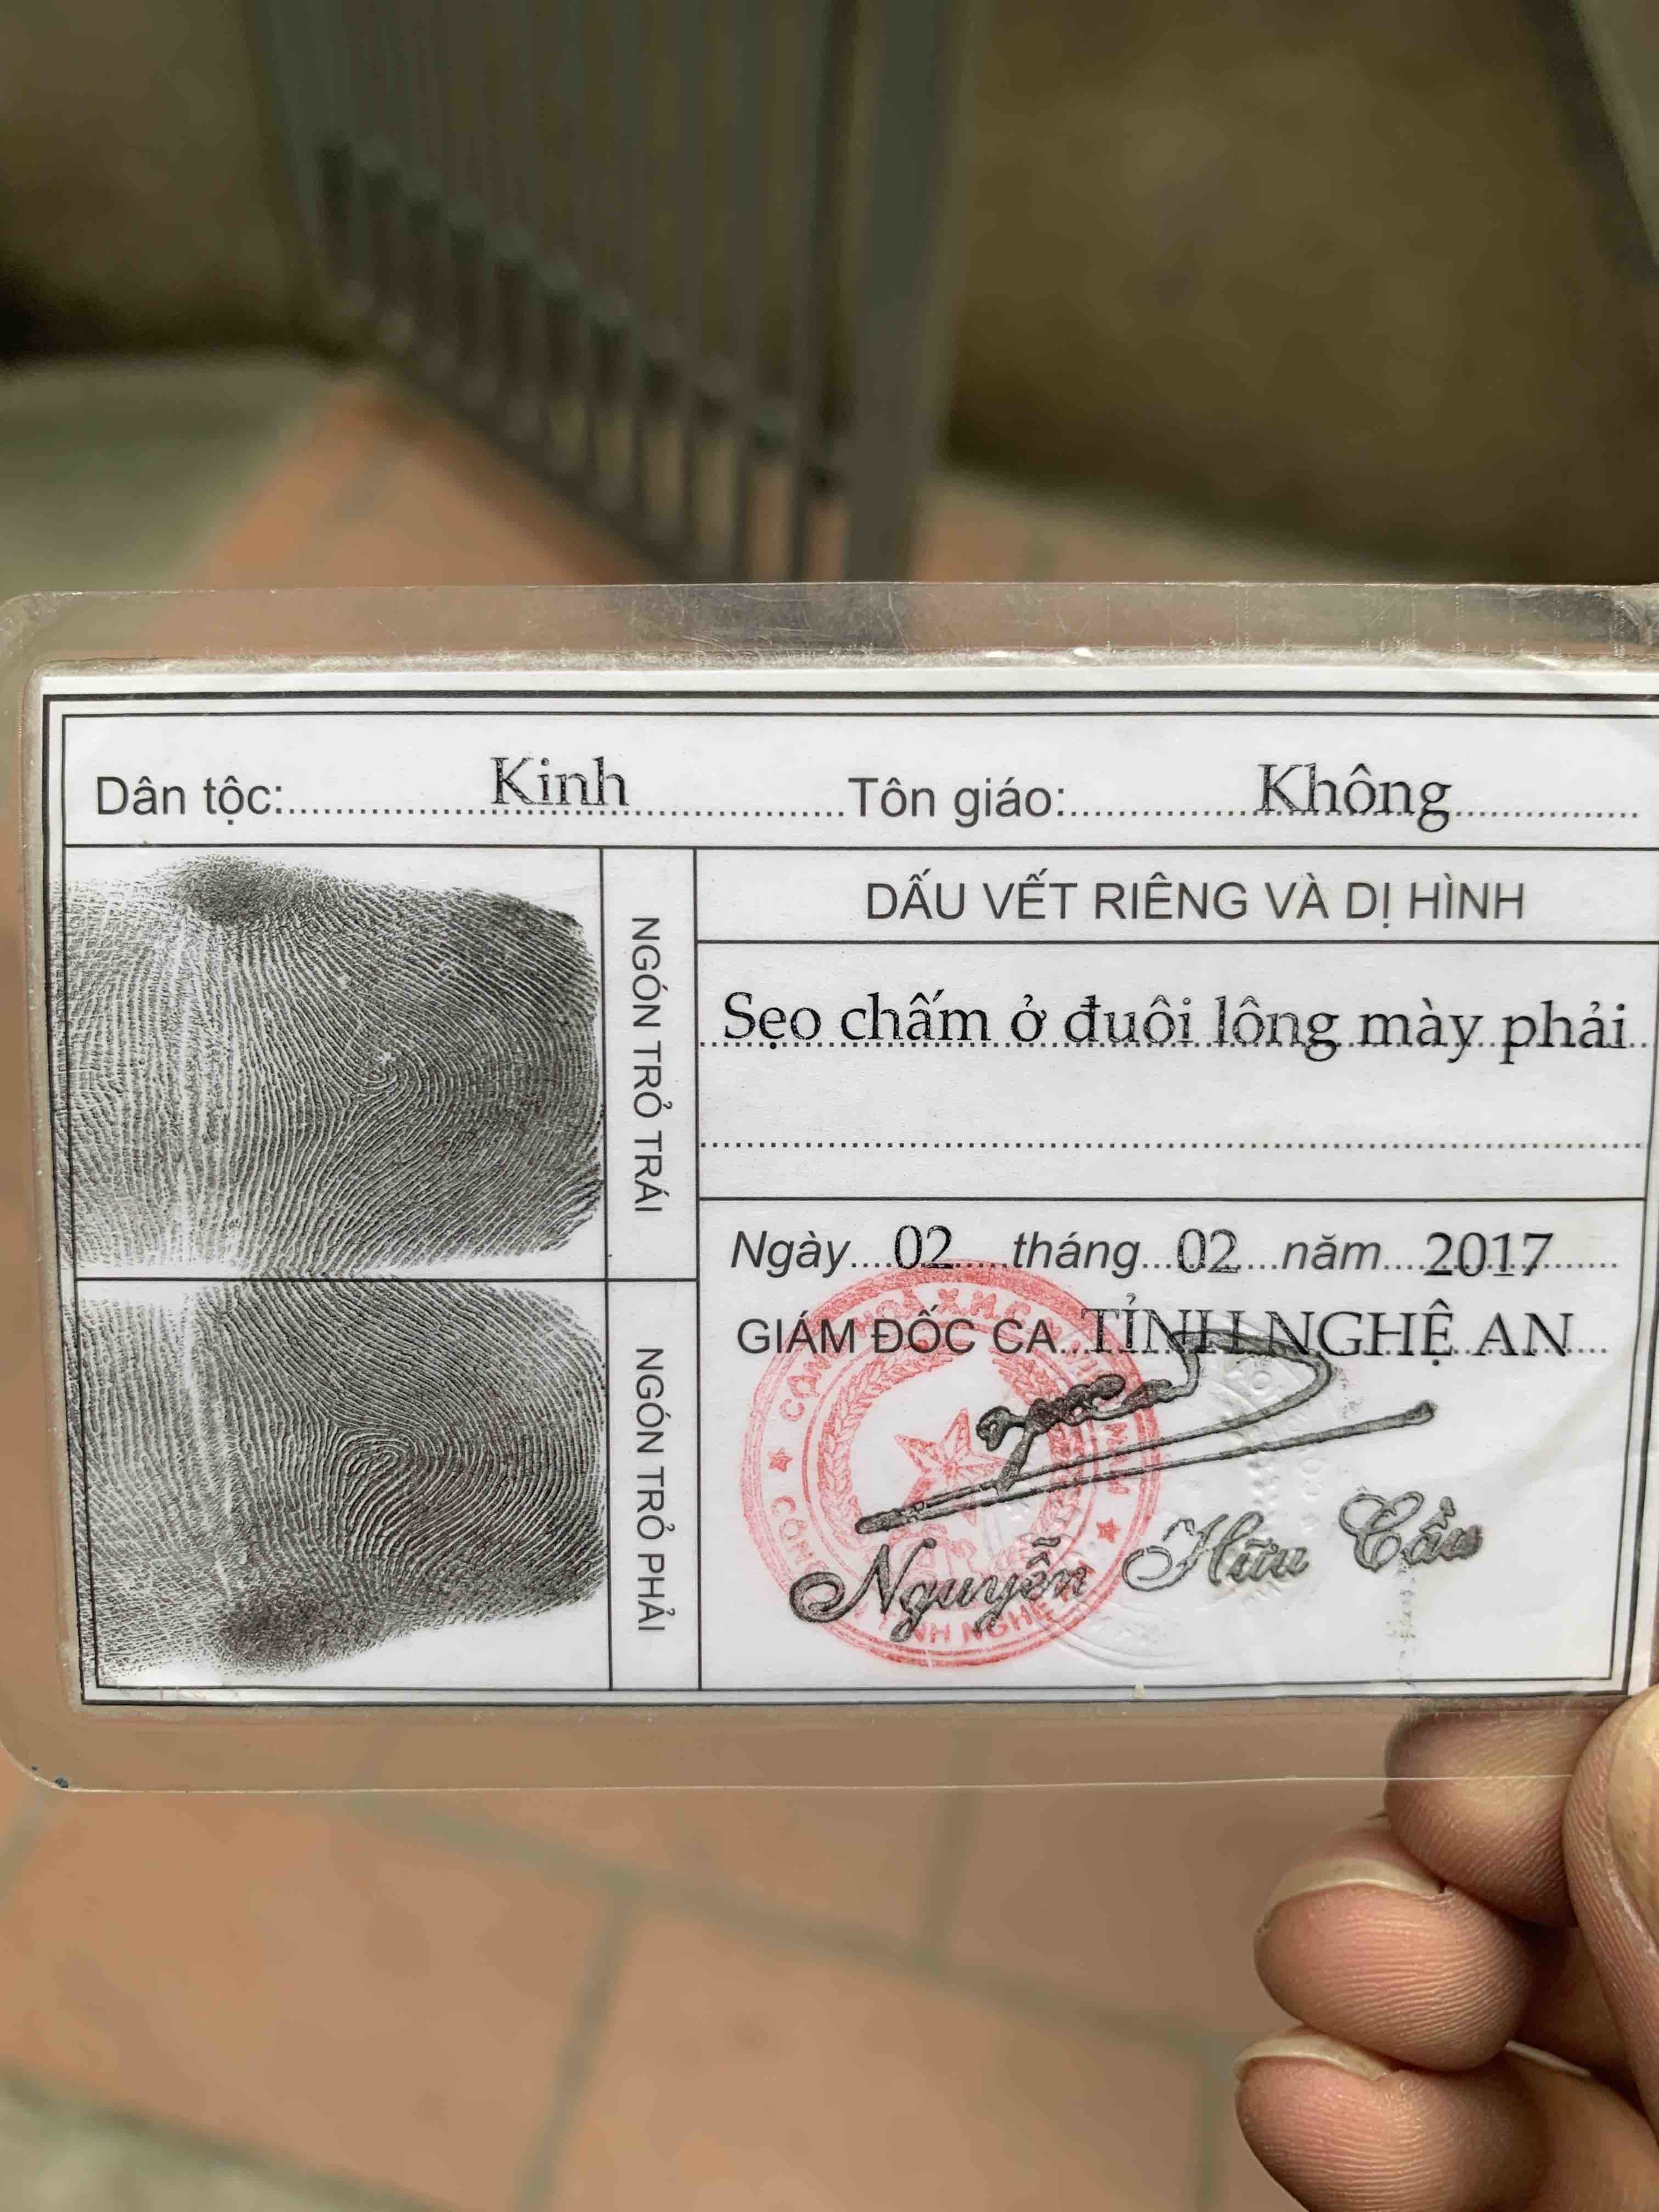 Dân tộc: Kinh Tôn giáo: Không
NGÓN TRỎ TRÁI
NGÓN TRỎ PHẢI
DẤU VẾT RIÊNG VÀ DỊ HÌNH
Sẹo chấm ở đuôi lông mày phải
Ngày 02 tháng 02 năm 2017
GIÁM ĐỐC CA TỈNH NGHỆ AN
Nguyễn Hữu Cầu